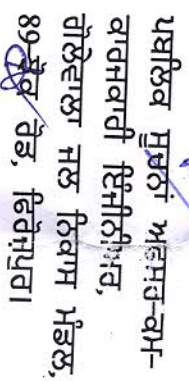 ਪਬਲਿਕ ਸੂਚਨਾਂ ਅਫ਼ਸਰ-ਕਮ-
ਕਾਰਜਕਾਰੀ ਇੰਜੀਨੀਅਰ,
ਗੋਲੇਵਾਲਾ ਜਲ ਨਿਕਾਸ ਮੰਡਲ,
ਰੋਡ, ਫਿਰੋਜ਼ਪੁਰ।